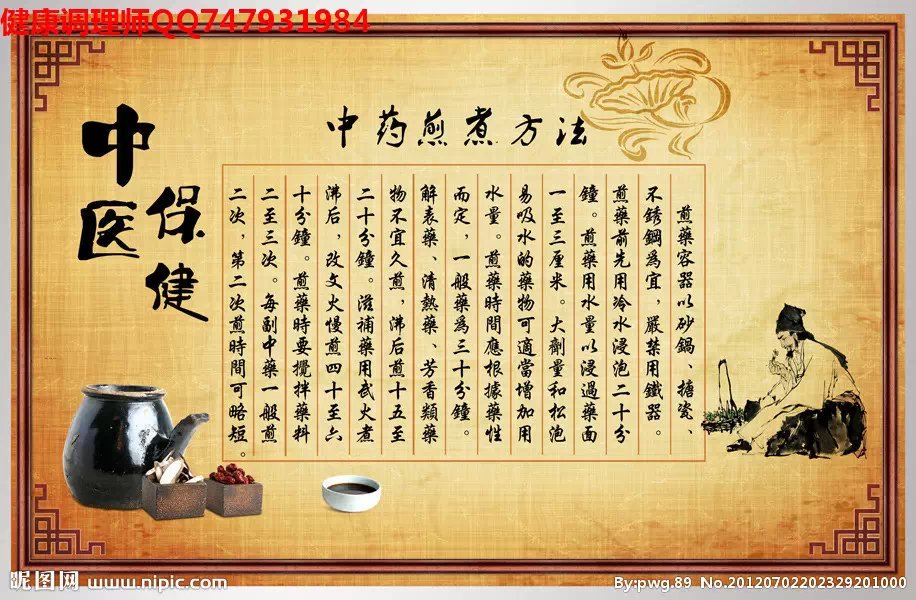 健康调理师QQ747931984
中医
保健
中药煎煮方法
煎藥容器以砂鍋、搪瓷、
不銹鋼為宜，嚴禁用鐵器。
煎藥前先用冷水浸泡二十分
鐘。煎藥用水量以浸過藥面
一至三厘米。大劑量和松泡
易吸水的藥物可適當增加用
水量。煎藥時間應根據藥性
而定，一般藥為三十分鐘。
解表藥、清熱藥、芳香類藥
物不宜久煎，沸后煎十五至
二十分鐘。滋補藥用武火煮
沸后，改文火慢煎四十至六
十分鐘。煎藥時要攪拌藥料
二至三次。每副中藥一般煎
二次，第二次煎時間可略短。
昵图网 www.nipic.com
By:pwg.89 No.20120702202329201000